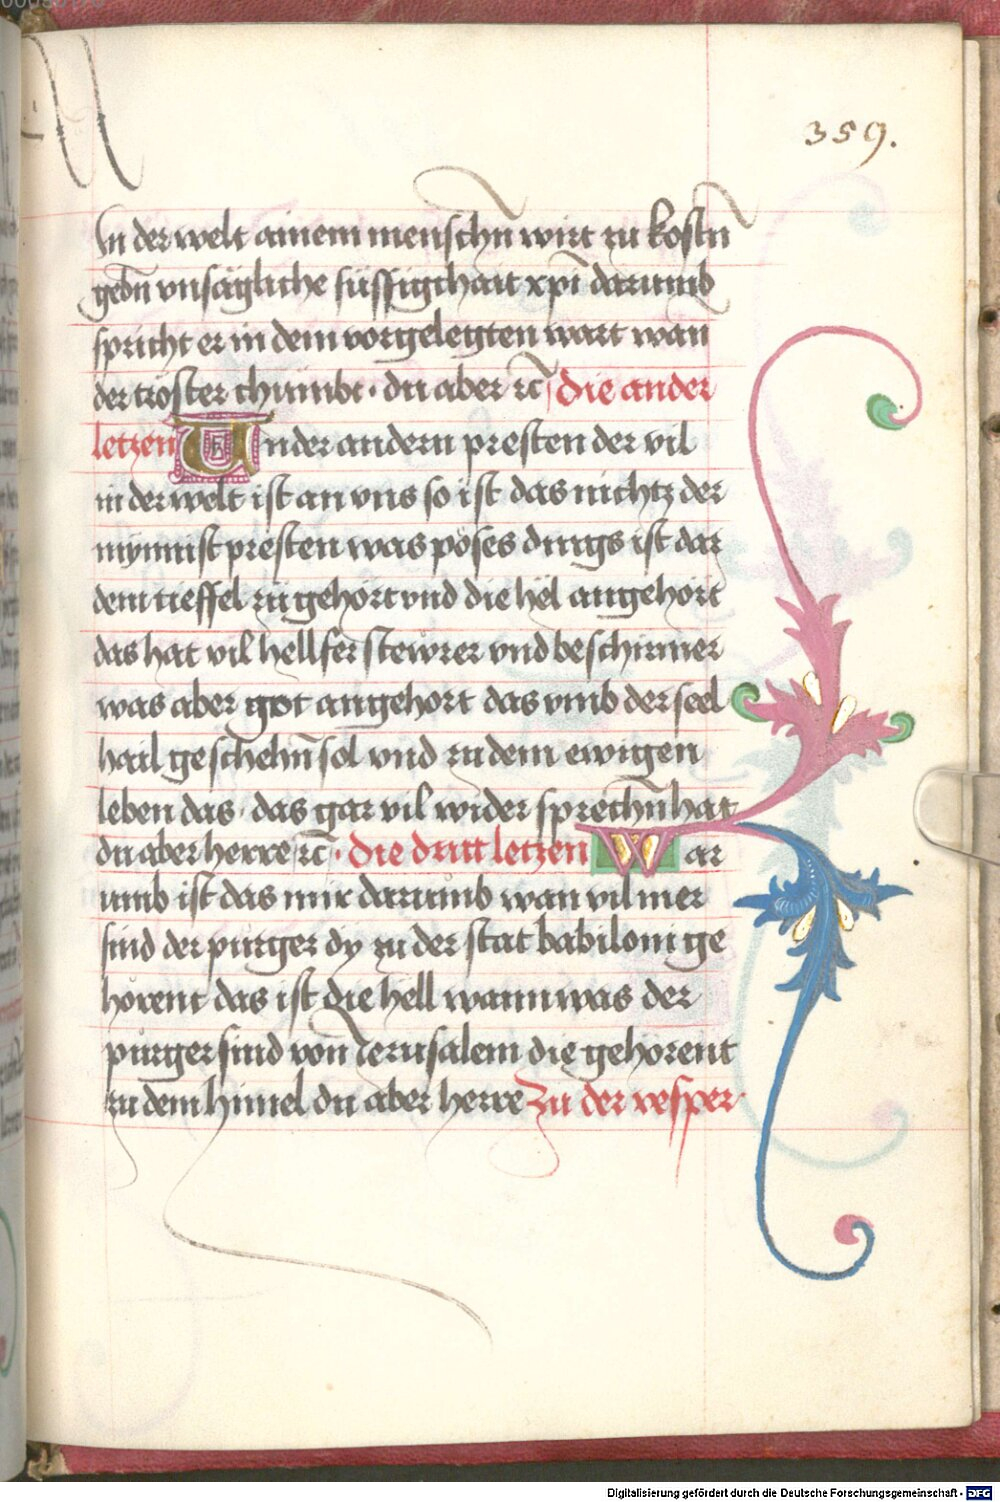 359.
In der welt ainem menschn̄ wirt zu kostn̄
gebn̄ vnsägliche süssigchait xpī darumb
spricht er in dem vorgelegten wart wan
der tröster chumbt · du aber ⁊c̄ die ander
letzen Under andern presten der vil
in der welt ist an vns so ist das nichtz der
mynnist presten was pöses dings ist dar
dem tieffel zů gehört vnd die hël angehört
das hat vil hellfer stewrer vnd beschirmer
was aber got angehort das vmb der seel
hail geschehn̄ sol vnd zu dem ewigen
leben das · das gar vil wider sprechn̄ hat
du aber herre ⁊c̄ · die dritt letzen War
umb ist das mir darumb wan vil mer
sind der purger dy zu der stat babiloni ge
hörent das ist die hell wann was der
purger sind von Jerusalem die gehorent
zu dem himel du aber herre Zu der vesper
Digitalisierung gefördert durch die Deutsche Forschungsgemeinschaft - DFG